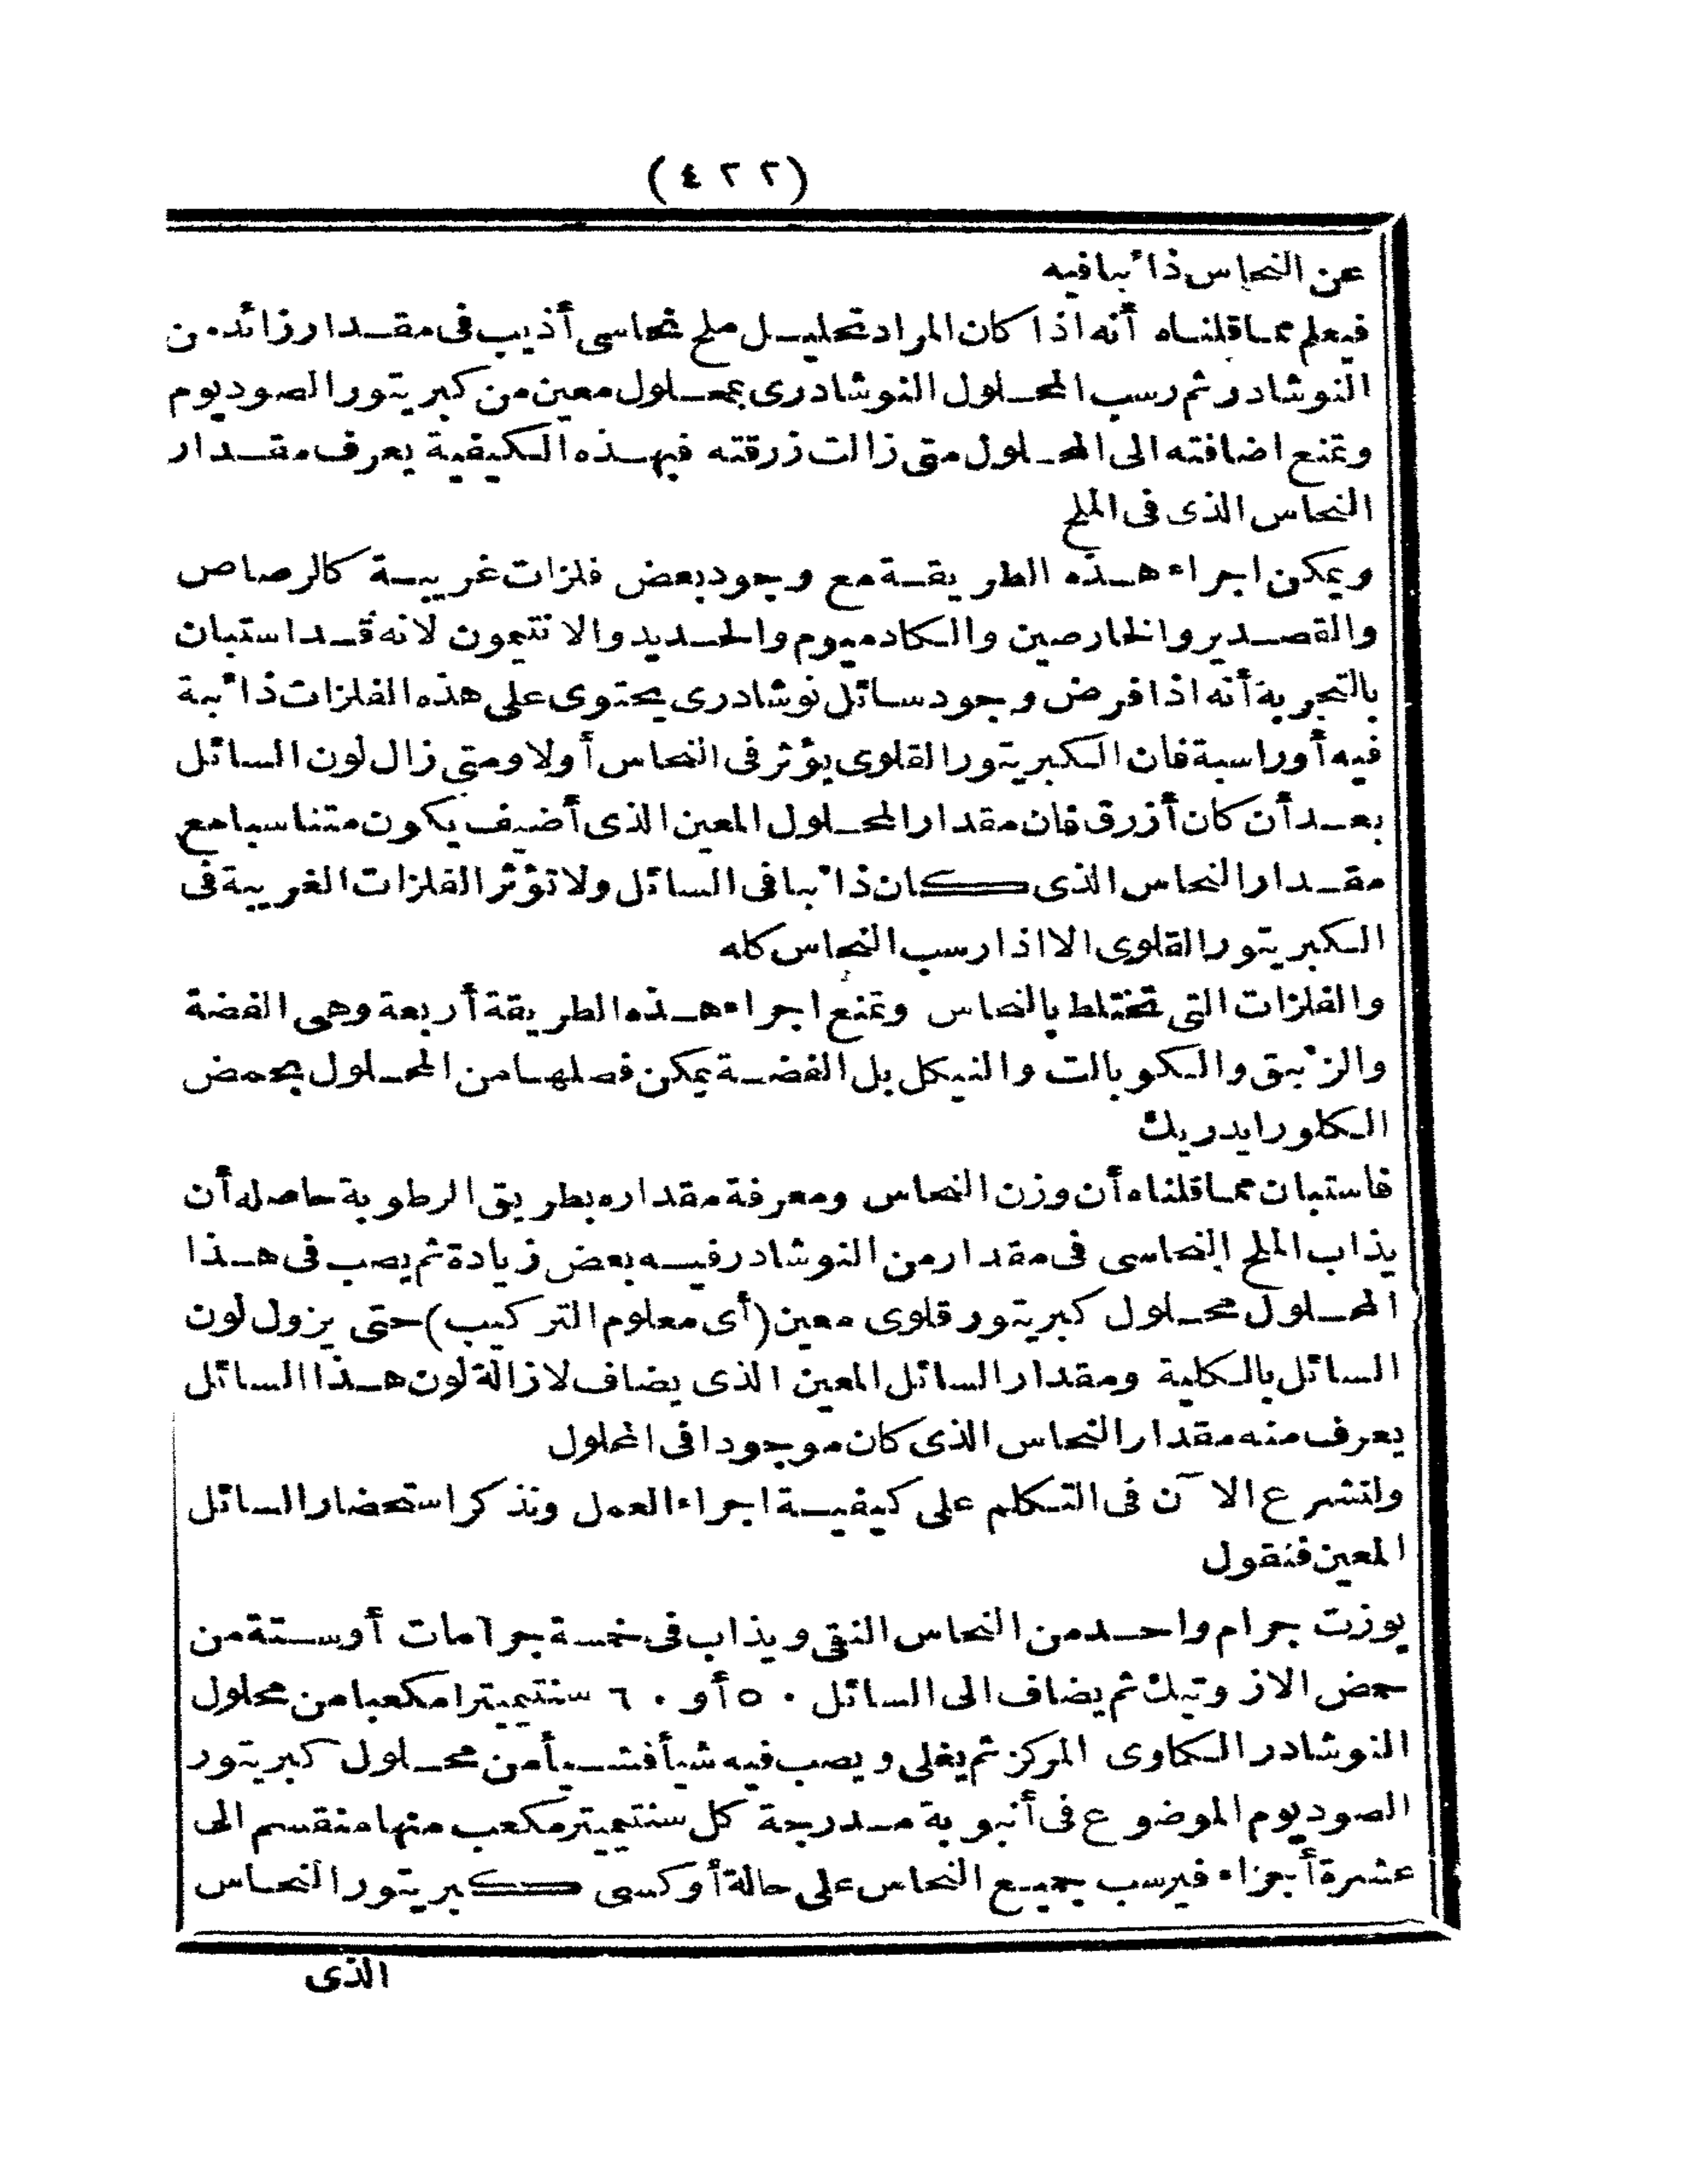 (٤٢٢)
عن النحاس ذائبا فيه
فيعلم مما قلناه أنه اذا كان المراد تحليل ملح نحاسى أذيب فى مقدار زائد من
النوشادر ثم رسب المحلول النوشادرى بمحلول معين من كبريتور الصوديوم
وتمنع اضافته الى المحلول متى زالت زرقته فبهذه الكيفية يعرف مقدار
النحاس الذى فى الملح
ويمكن اجراء هذه الطريقة مع وجود بعض فلزات غريبة كالرصاص
والقصدير والخارصين والكادميوم والحديد والانتيمون لانه قد استبان
بالتجربة أنه اذا فرض وجود سائل نوشادرى يحتوى على هذه الفلزات ذائبة
فيه أو راسبة فان الكبريتور القلوى يؤثر فى النحاس أولا ومتى زال لون السائل
بعد أن كان أزرق فان مقدار المحلول المعين الذى أضيف يكون متناسبا مع
مقدار النحاس الذى كان ذائبا فى السائل ولا تؤثر الفلزات الغريبة فى
الكبريتور القلوى الا اذا رسب النحاس كله
والفلزات التى تختلط بالنحاس وتمنع اجراء هذه الطريقة أربعة وهى الفضة
والزئبق والكوبالت والنيكل بل الفضة يمكن فصلها من المحلول بحمض
الكلورايدريك
فاستبان مما قلناه أن وزن النحاس ومعرفة مقداره بطريق الرطوبة حاصله أن
يذاب الملح النحاسى فى مقدار من النوشادر فيه بعض زيادة ثم يصب فى هذا
المحلول محلول كبريتور قلوى معين (أى معلوم التركيب) حتى يزول لون
السائل بالكلية ومقدار السائل المعين الذى يضاف لازالة لون هذا السائل
يعرف منه مقدار النحاس الذى كان موجودا فى المحلول
ولنشرع الآن فى التكلم على كيفية اجراء العمل ونذكر استحضار السائل
المعين فنقول
يوزن جرام واحد من النحاس النقى ويذاب فى خمسة جرامات أو ستة من
حمض الازوتيك ثم يضاف الى السائل ٥٠ أو ٦٠ سنتيميترا مكعبا من محلول
النوشادر الكاوى المركز ثم يغلى ويصب فيه شيأ فشيأ من محلول كبريتور
الصوديوم الموضوع فى أنبوبة مدرجة كل سنتيميتر مكعب منها منقسم الى
عشرة أجزاء فيرسب جميع النحاس على حالة أوكسى كبريتور النحاس
الذى